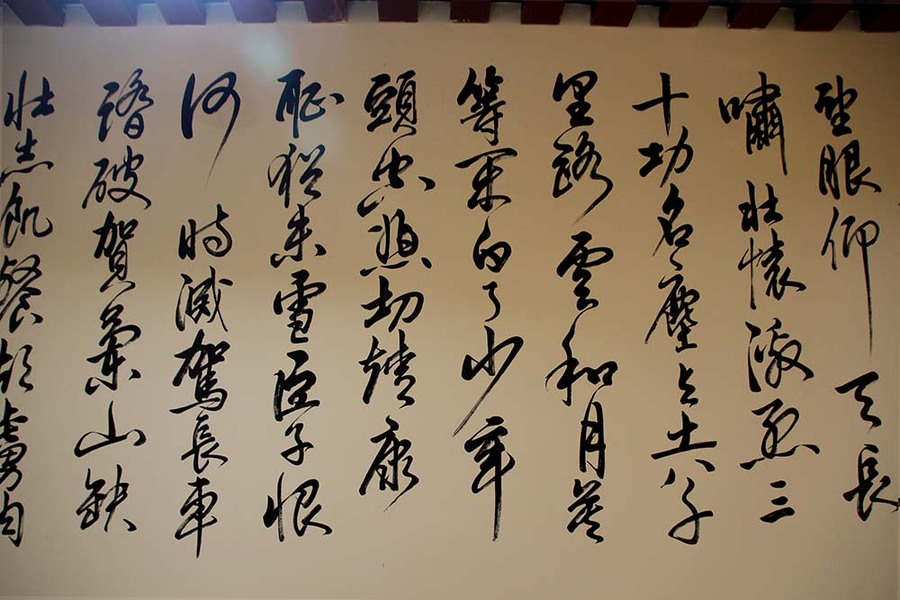 望眼仰天長
嘯壯懷激烈三
十功名塵与土八千
里路雲和月莫
等閑白了少年
頭空悲切靖康
耻猶未雪臣子恨
何時滅駕長車
踏破賀蘭山缺
壯志飢餐胡虜肉